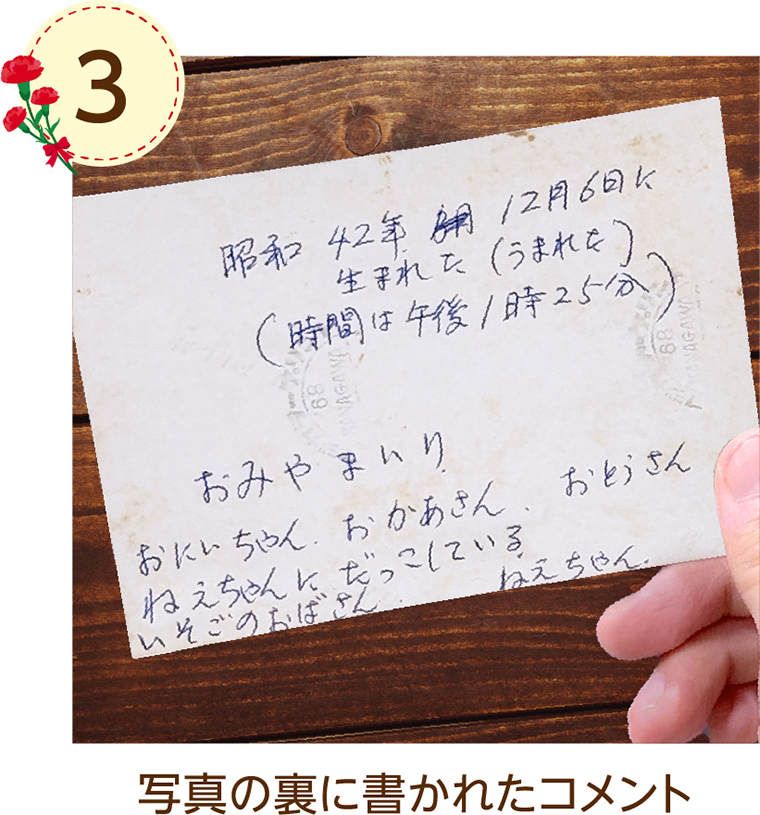 3
昭和 42年 12月6日に
生まれた (うまれた)
(時間は午後1時25分)
68
KANAGAWA
68
KANAGAWA
おみやまいり
おにいちゃん. おかあさん. おとうさん
ねえちゃんにだっこしている
ねえちゃん.
いそごのおばさん.
写真の裏に書かれたコメント